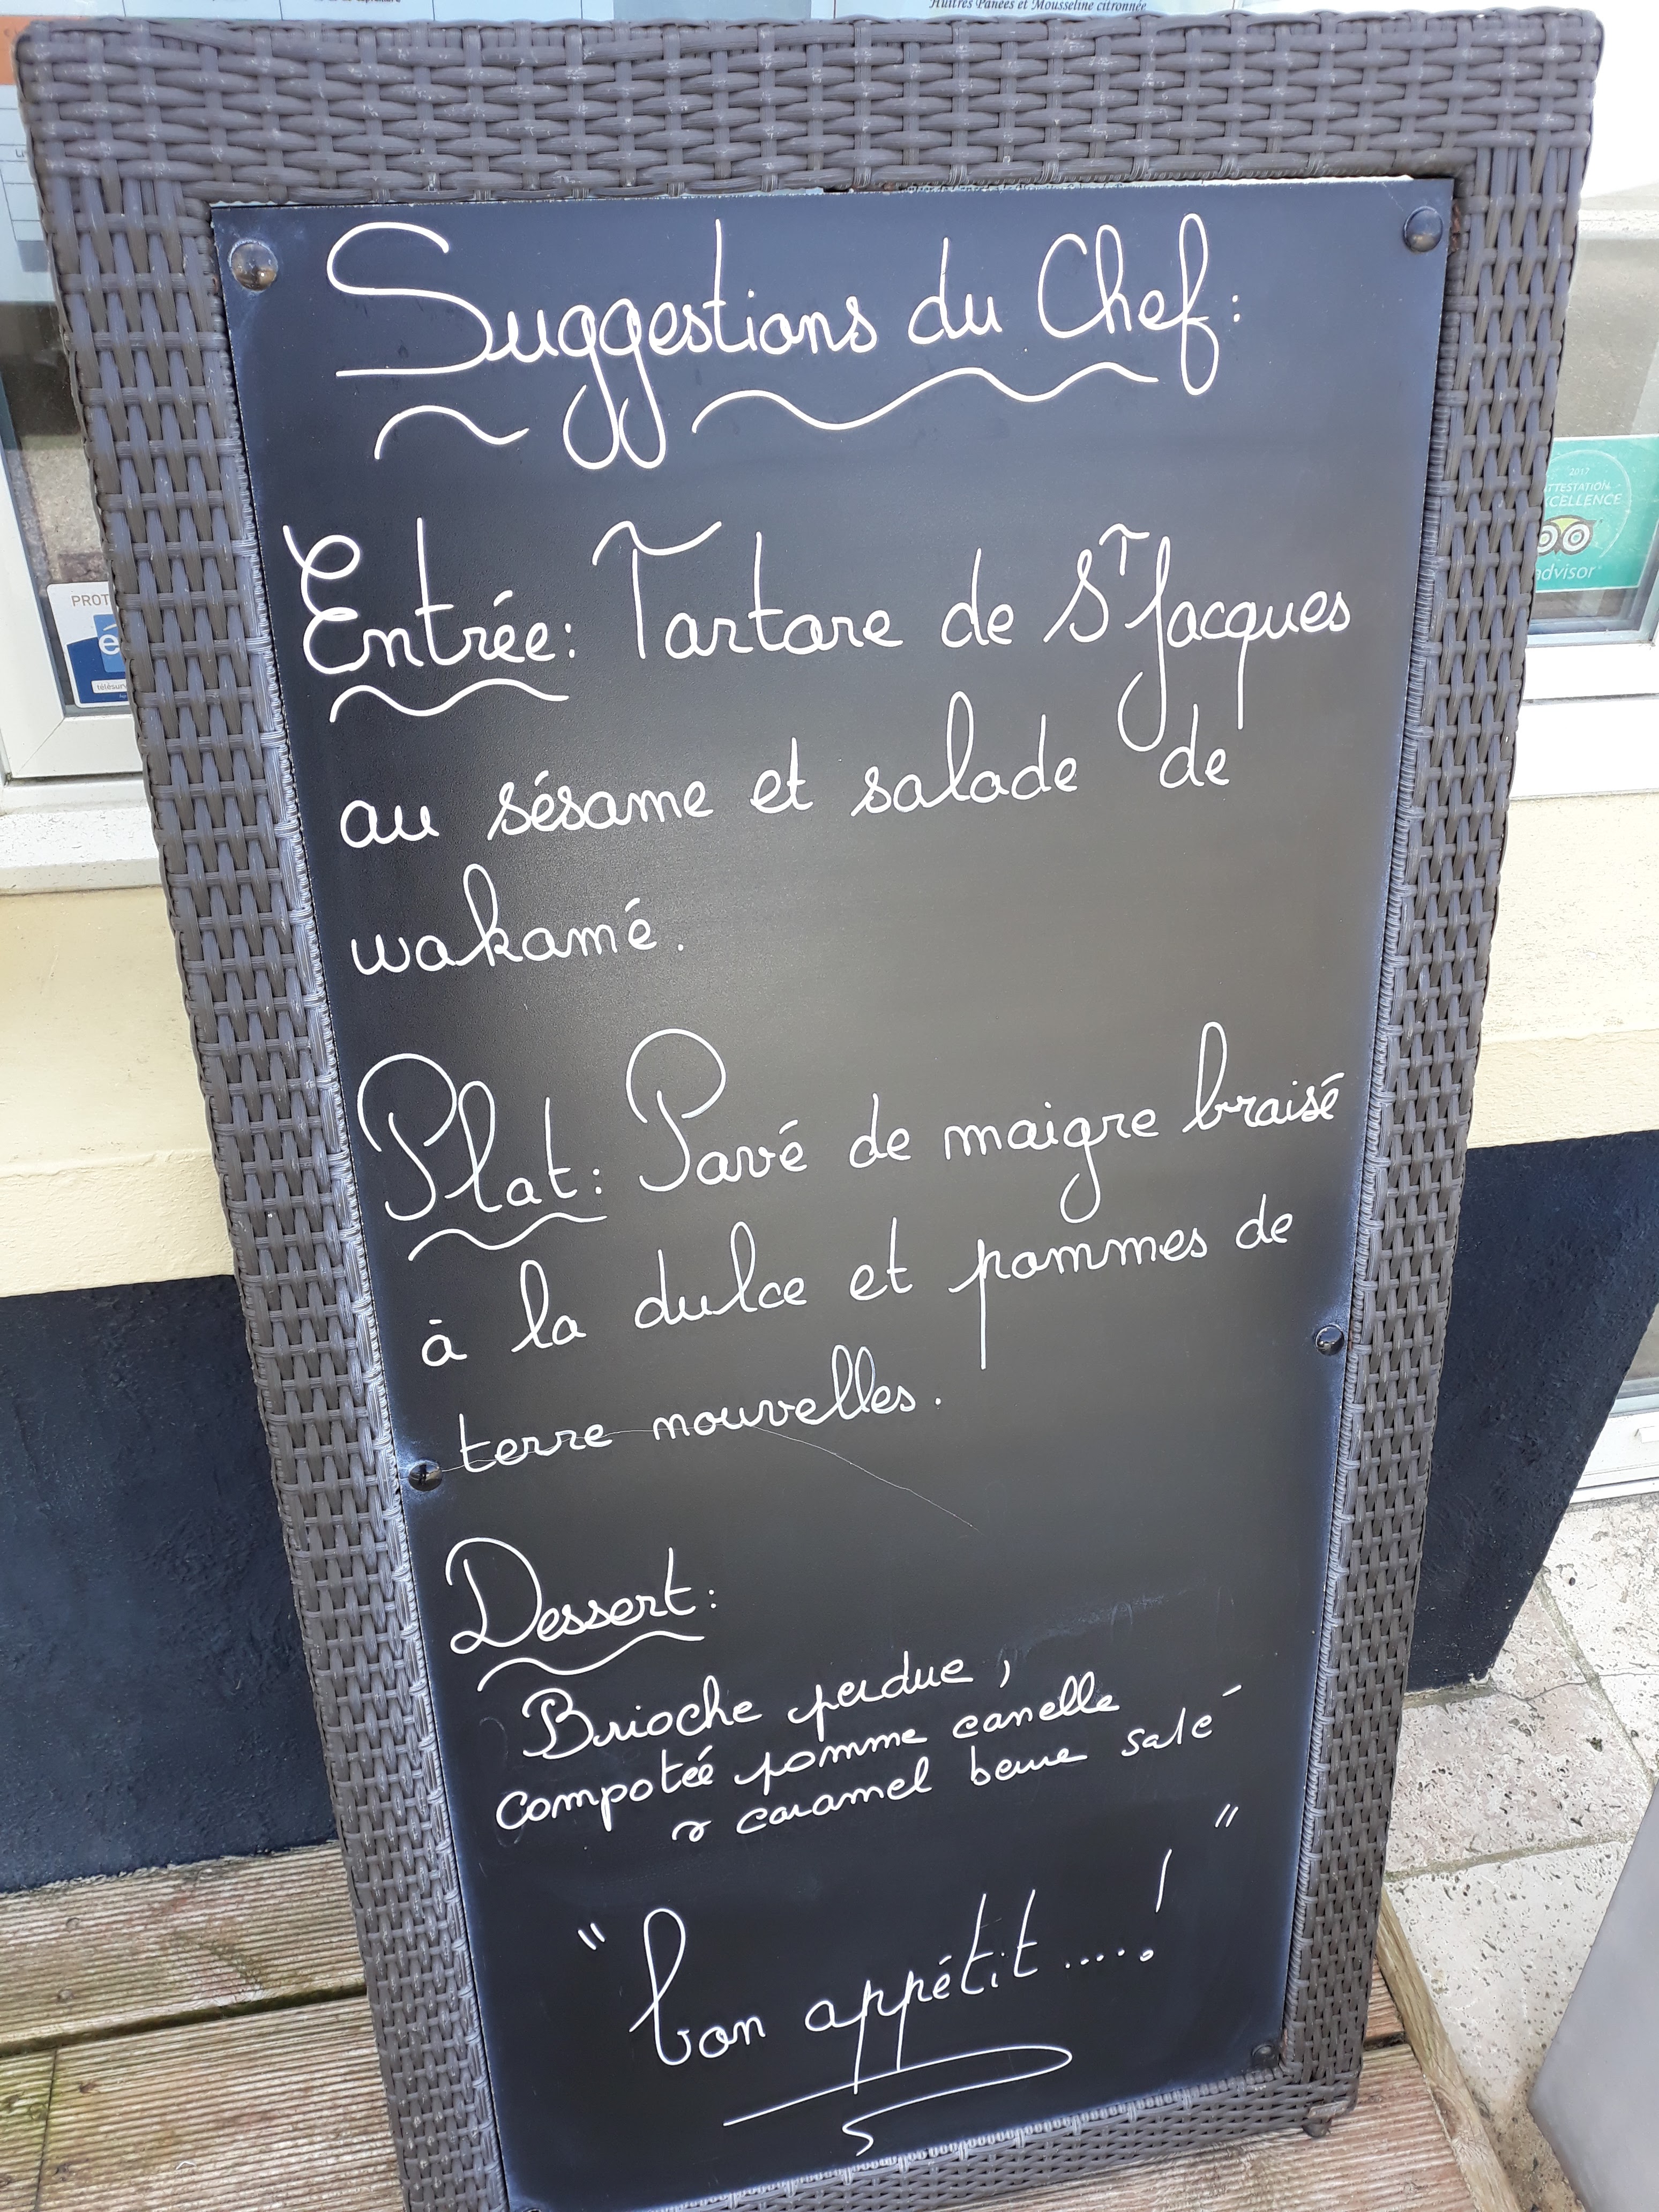 Huîtres Panées et Mousseline citronnée
Suggestions du Chef:
Entrée: Tartare de ST Jacques
au sésame et salade de
wakamé.
Plat: Pavé de maigre braisé
à la dulce et pommes de
terre nouvelles.
Dessert:
Brioche perdue,
compotée pomme canelle
& caramel beurre salé
"bon appétit.....!"
2017
ATTESTATION
XCELLENCE
advisor
PROT
é
télésur